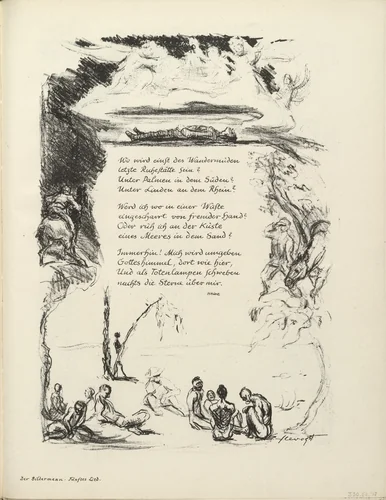 Wo wird einst des Wandermüden
letzte Ruhestätte sein?
Unter Palmen in dem Süden?
Unter Linden an dem Rhein?
Werd ich wo in einer Wüste
eingescharrt von fremder Hand?
Oder ruh ich an der Küste
eines Meeres in dem Sand?
Immerhin! Mich wird umgeben
Gotteshimmel, dort wie hier,
Und als Totenlampen schweben
nachts die Sterne über mir.
Slevogt
Der Bildermann. Fünftes Lied.